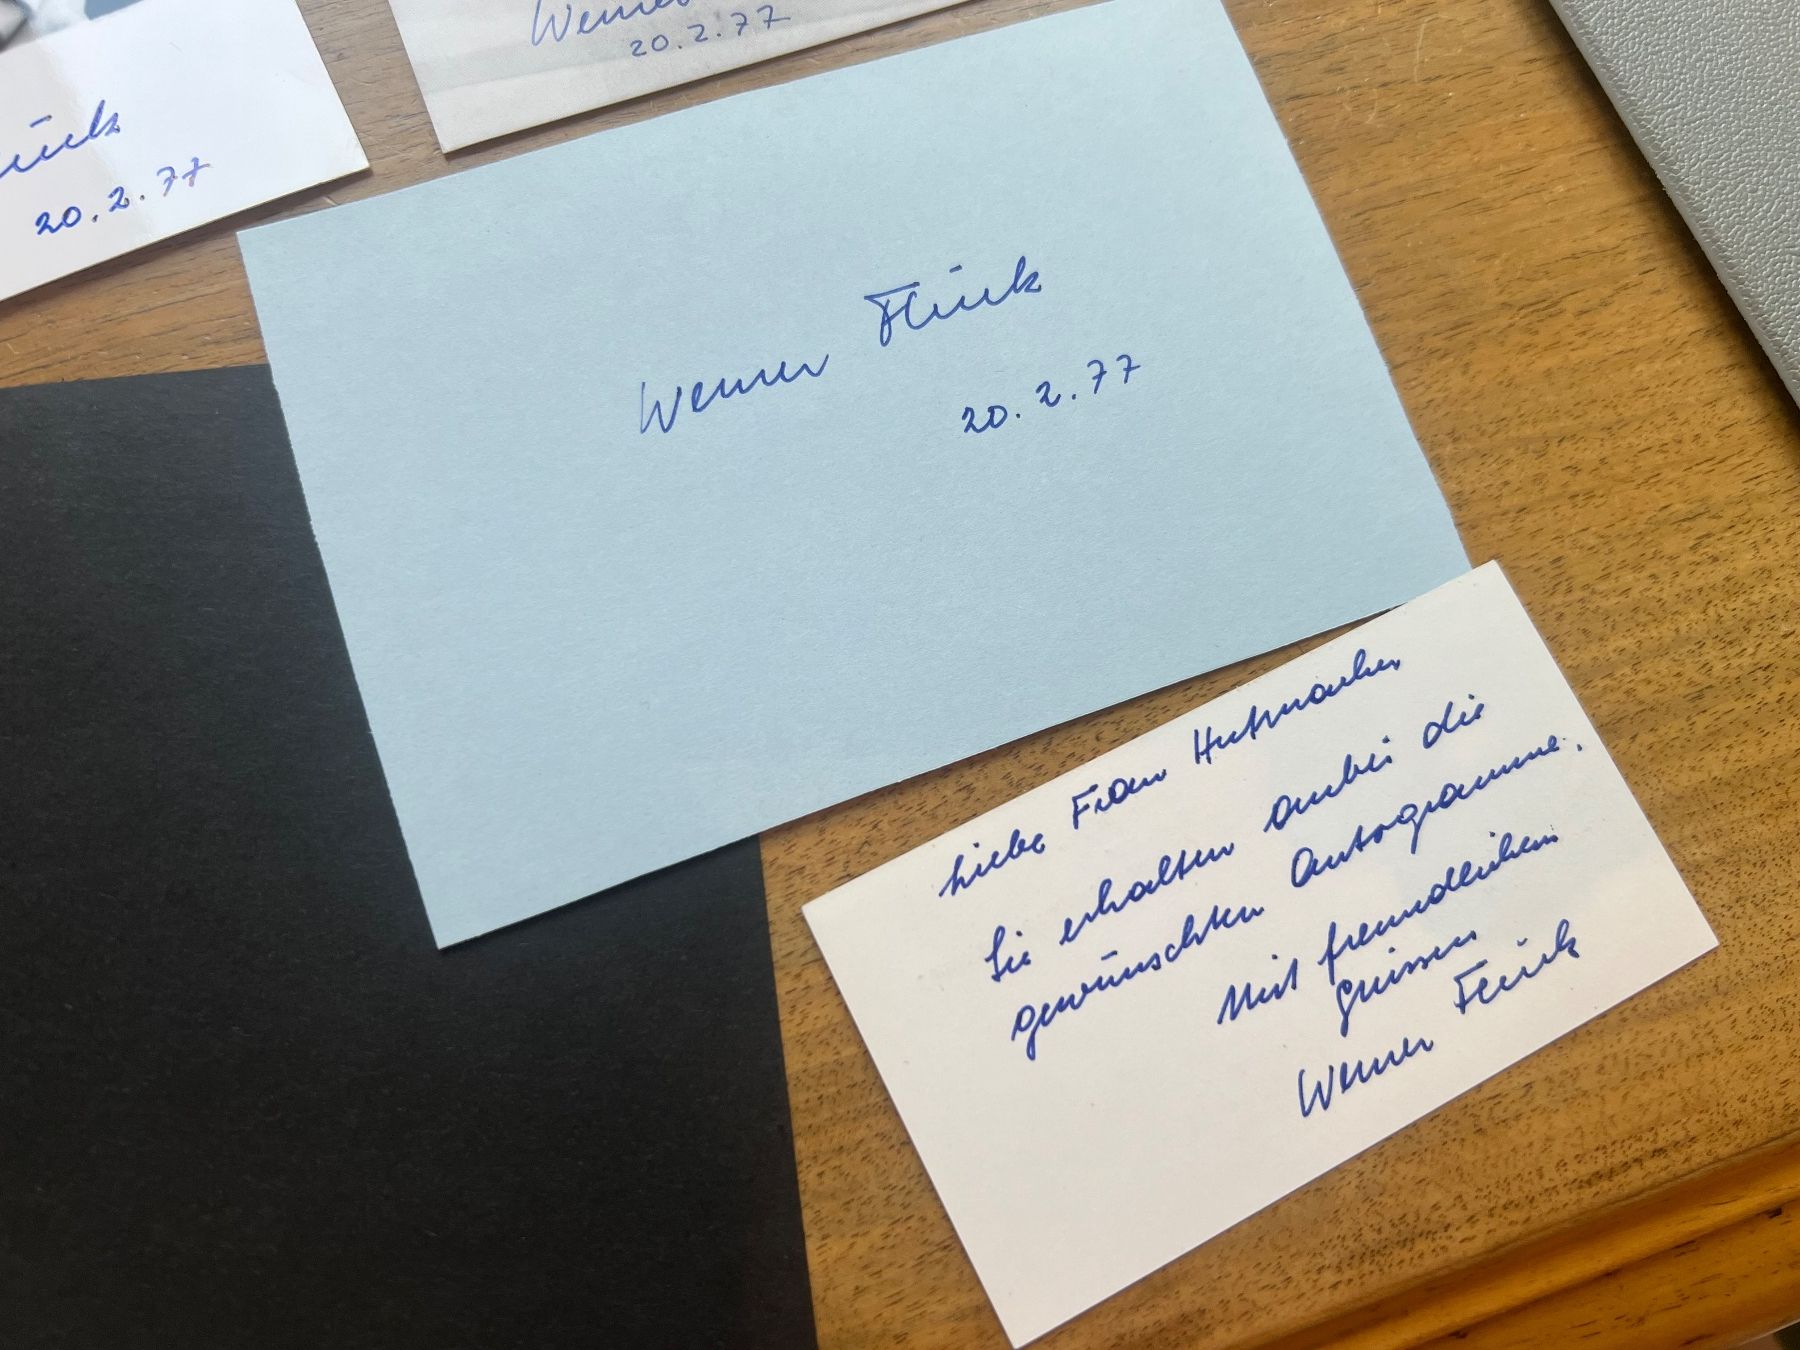 Werner
20.2.77
ück
20.2.77
Werner Flück
20.2.77
Liebe Frau Hutmacher
Sie erhalten anbei die
gewünschten Autogramme.
Mit freundlichen
Grüssen
Werner Flück